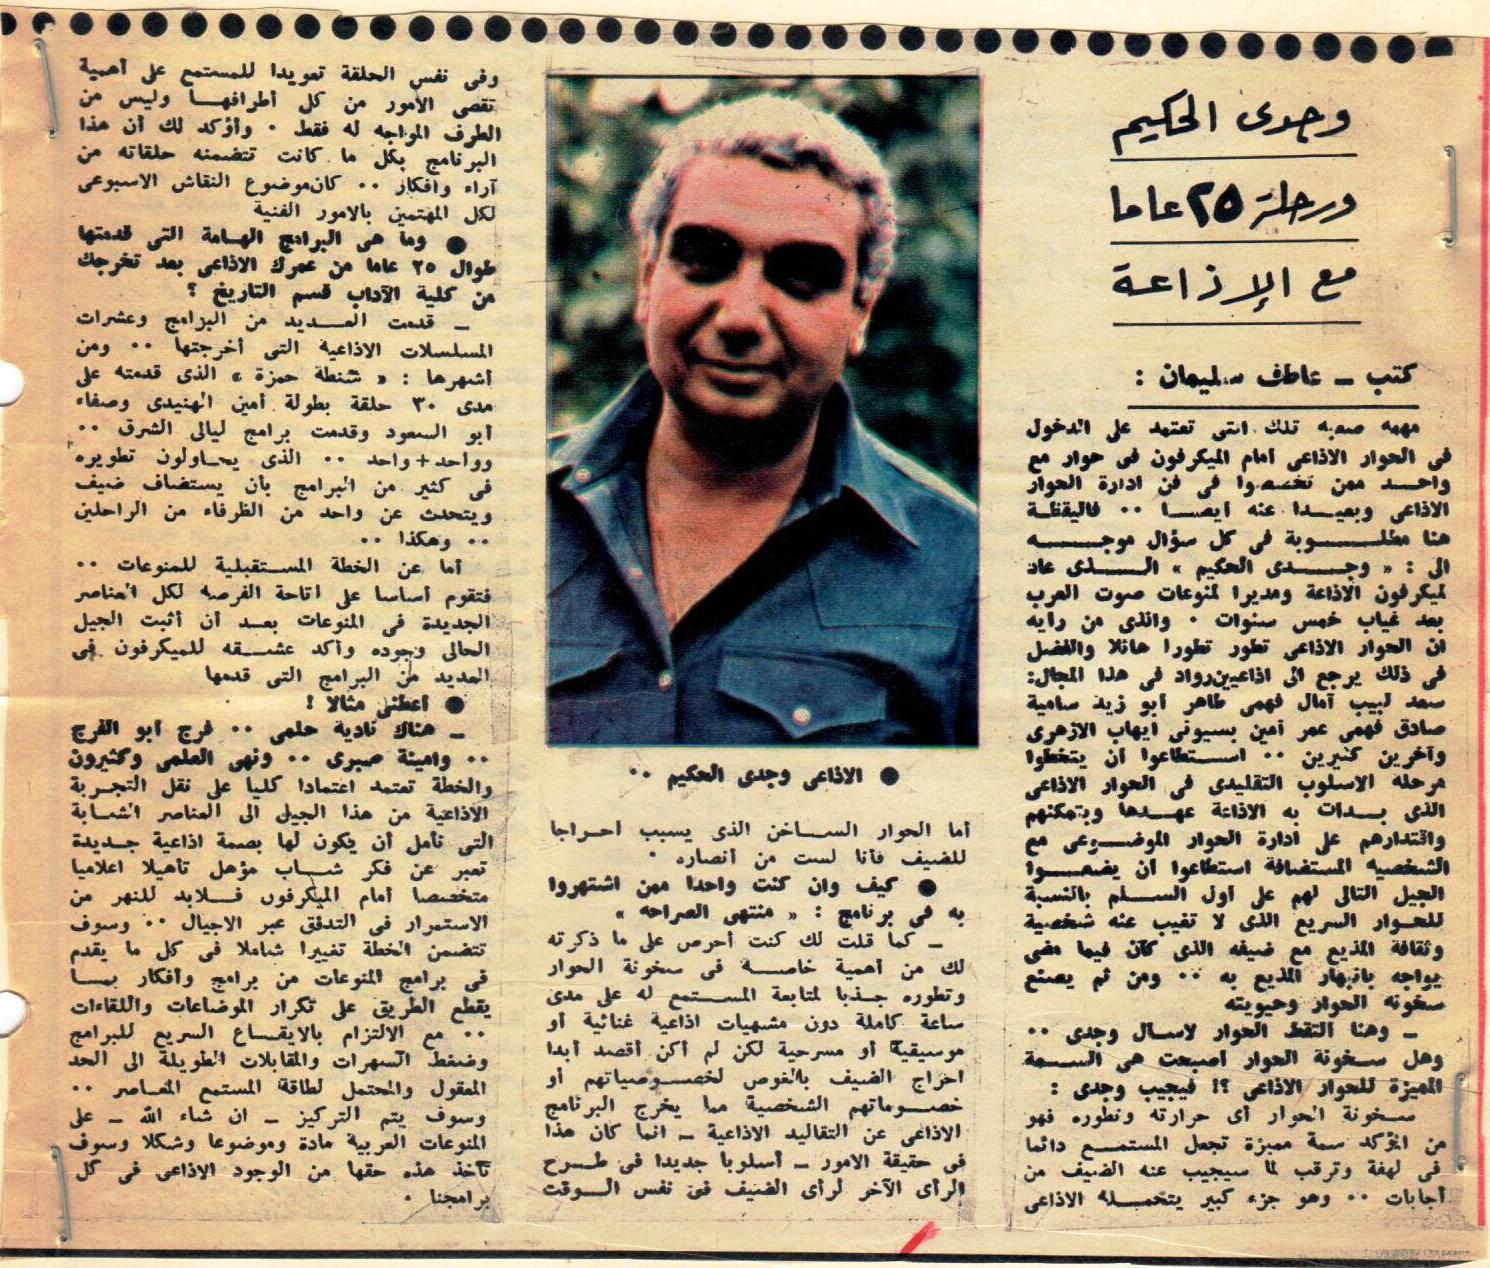 وجدى الحكيم
ورحلة ٢٥ عاما
مع الإذاعة
كتب ــ عاطف سليمان :
مهمه صعبه تلك التى تعتمد على الدخول
فى الحوار الاذاعى أمام الميكرفون فى حوار مع
واحد ممن تخصصوا فى فن ادارة الحوار
الاذاعى وبعيدا عنه أيضا ٠٠ فاليقظة
هنا مطلوبة فى كل سؤال موجه
الى : « وجدى الحكيم » الذى عاد
لميكرفون الاذاعة ومديرا لمنوعات صوت العرب
بعد غياب خمس سنوات ٠ والذى من رأيه
ان الحوار الاذاعى تطور تطورا هائلا والفضل
فى ذلك يرجع الى اذاعيين رواد فى هذا المجال:
سعد لبيب آمال فهمى طاهر أبو زيد سامية
صادق فهمى عمر أمين بسيونى ايهاب الازهرى
وآخرين كثيرين ٠٠ استطاعوا أن يتخطوا
مرحلة الاسلوب التقليدى فى الحوار الاذاعى
الذى بدأت به الاذاعة عهدها وبتمكنهم
واقتدارهم على ادارة الحوار الموضوعى مع
الشخصيه المستضافة استطاعوا أن يضعوا
الجيل التالى لهم على أول السلم بالنسبة
للحوار السريع الذى لا تغيب عنه شخصية
وثقافة المذيع مع ضيفه الذى كان فيما مضى
يواجه بانبهار المذيع به ٠٠ ومن ثم يصنع
سخونه الحوار وحيويته
ــ وهنا التقط الحوار لاسال وجدى ٠٠
وهل سخونة الحوار أصبحت هى السمة
المميزة للحوار الاذاعى ؟! فيجيب وجدى :
سخونة الحوار أى حرارته وتطوره فهو
من المؤكد سمة مميزة تجعل المستمع دائما
فى لهفة وترقب لما سيجيب عنه الضيف من
أجابات ٠٠ وهو جزء كبير يتحمله الاذاعى
● الاذاعى وجدى الحكيم ٠٠
أما الحوار الساخن الذى يسبب احراجا
للضيف فأنا لست من أنصاره ٠
● كيف وان كنت واحدا ممن اشتهروا
به فى برنامج : « منتهى الصراحه »
ــ كما قلت لك كنت أحرص على ما ذكرته
لك من أهمية خاصة فى سخونة الحوار
وتطوره جذبا لمتابعة المستمع له على مدى
ساعة كاملة دون مشهيات اذاعية غنائية أو
موسيقية أو مسرحية لكن لم أكن أقصد أبدا
احراج الضيف بالغوص لخصوصياتهم أو
خصوماتهم الشخصية مما يخرج البرنامج
الاذاعى عن التقاليد الاذاعية ــ انما كان هذا
فى حقيقة الامور ــ أسلوبا جديدا فى طرح
الرأى الآخر لرأى الضيف فى نفس الوقت
وفى نفس الحلقة تعويدا للمستمع على أهمية
تقصى الأمور من كل أطرافها وليس من
الطرف المواجه له فقط ٠ وأؤكد لك أن هذا
البرنامج بكل ما كانت تتضمنه حلقاته من
آراء وافكار ٠٠ كان موضوع النقاش الاسبوعى
لكل المهتمين بالامور الفنية
● وما هى البرامج الهامة التى قدمتها
طوال ٢٥ عاما من عمرك الاذاعى بعد تخرجك
من كلية الآداب قسم التاريخ ؟
ــ قدمت العديد من البرامج وعشرات
المسلسلات الاذاعية التى أخرجتها ٠٠ ومن
أشهرها : « شنطة حمزة » الذى قدمته على
مدى ٣٠ حلقة بطولة أمين الهنيدى وصفاء
أبو السعود وقدمت برامج ليالى الشرق ٠٠
وواحد+واحد ٠٠ الذى يحاولون تطويره
فى كثير من البرامج بأن يستضاف ضيف
ويتحدث عن واحد من الظرفاء من الراحلين
٠٠ وهكذا ٠٠
أما عن الخطة المستقبلية للمنوعات ٠٠
فتقوم أساسا على اتاحة الفرصه لكل العناصر
الجديدة فى المنوعات بعد أن أثبت الجيل
الحالى وجوده وأكد عشقه للميكرفون فى
العديد من البرامج التى قدمها
● أعطنى مثالا !
ــ هناك نادية حلمى ٠٠ فرج أبو الفرج
٠٠ وامينة صبرى ٠٠ ونهى العلمى وكثيرون
والخطة تعتمد اعتمادا كليا على نقل التجربة
الاذاعية من هذا الجيل الى العناصر الشابة
التى نأمل أن يكون لها بصمة اذاعية جديدة
تعبر عن فكر شاب مؤهل تأهيلا اعلاميا
متخصصا أمام الميكرفون فلابد للنهر من
الاستمرار فى التدفق عبر الاجيال ٠٠ وسوف
تتضمن الخطة تغييرا شاملا فى كل ما يقدم
فى برامج المنوعات من برامج وأفكار بما
يقطع الطريق على تكرار الموضاعات واللقاءات
٠٠ مع الالتزام بالايقاع السريع للبرامج
وضغط السهرات والمقابلات الطويلة الى الحد
المعقول والمحتمل لطاقة المستمع المعاصر ٠٠
وسوف يتم التركيز ــ ان شاء الله ــ على
المنوعات العربية مادة وموضوعا وشكلا وسوف
تأخذ هذه حقها من الوجود الاذاعى فى كل
برامجنا ٠